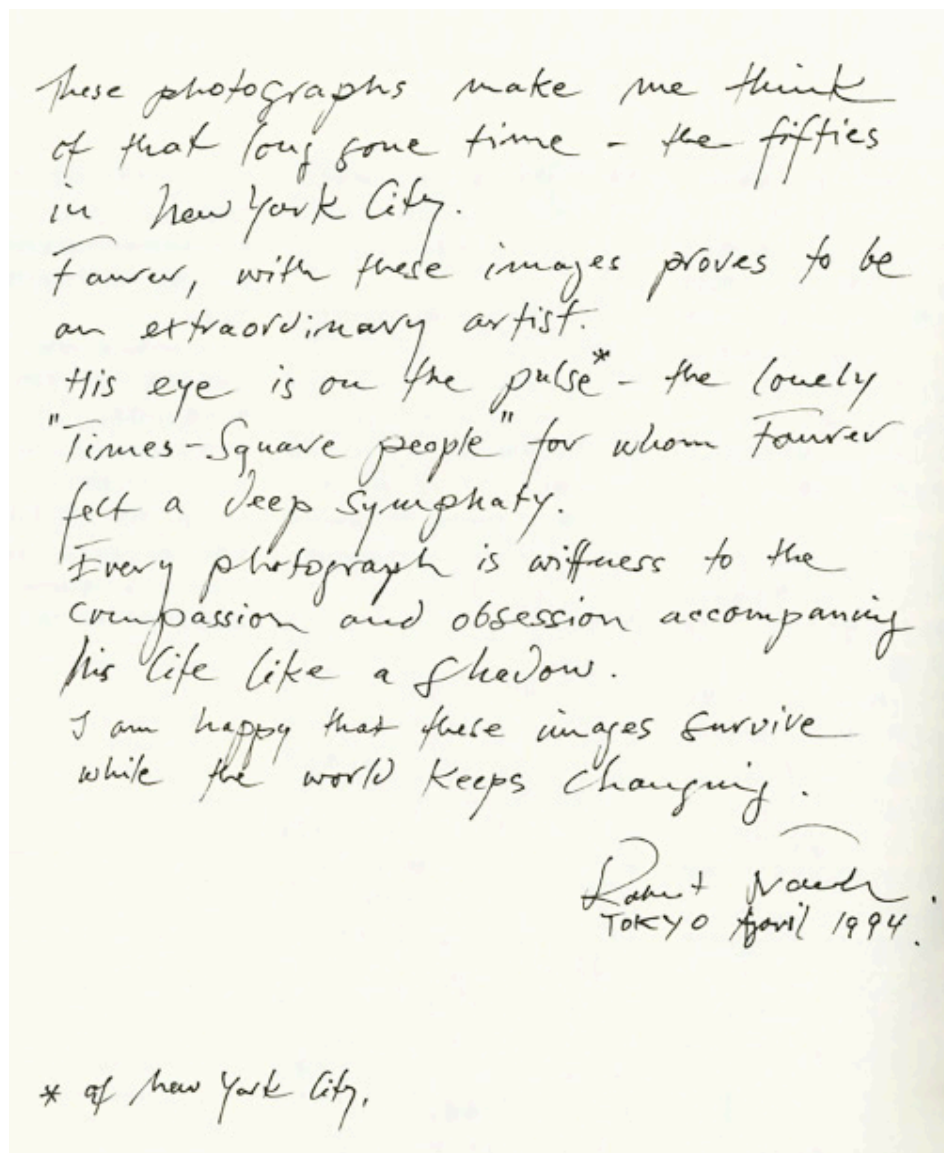 These photographs make me think
of that long gone time - the fifties
in New York City.
Faurer, with these images proves to be
an extraordinary artist.
His eye is on the pulse* - the lonely
"Times-Square people" for whom Faurer
felt a deep symphaty.
Every photograph is wittness to the
compassion and obsession accompaning
his life like a shadow.
I am happy that these images survive
while the world keeps changing.
Robert
TOKYO April 1994.
* of New York City.